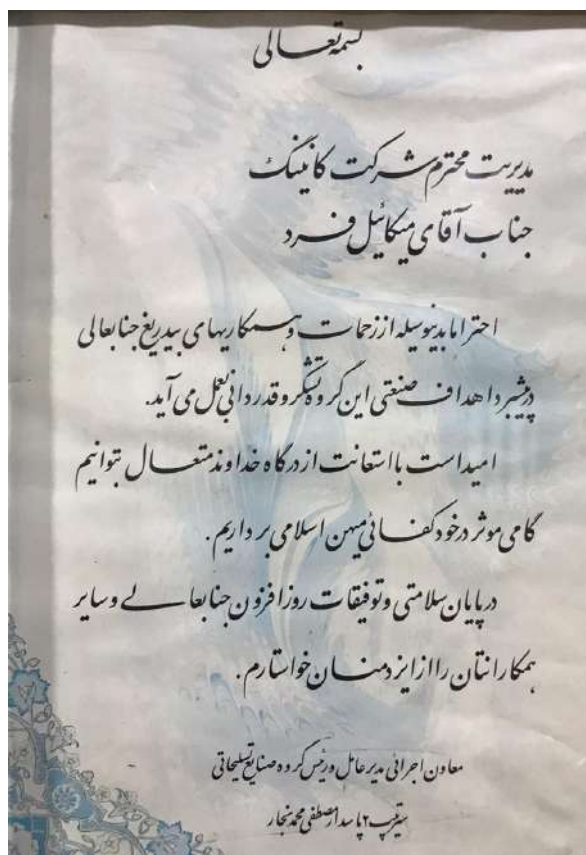 بسمه تعالی
مدیریت محترم شرکت کانینگ
جناب آقای میکائیل فرد
احتراما بدینوسیله از زحمات و همکاریهای بیدریغ جنابعالی
در پیشبرد اهداف صنعتی این گروه تشکر و قدردانی بعمل می آید.
امید است با استعانت از درگاه خداوند متعال بتوانیم
گامی موثر در خود کفائی میهن اسلامی برداریم.
در پایان سلامتی و توفیقات روز افزون جنابعالی و سایر
همکارانتان را از ایزد منان خواستارم.
معاون اجرائی مدیر عامل و رئیس گروه صنایع تسلیحاتی
سرتیپ ۲ پاسدار مصطفی محمد نجار